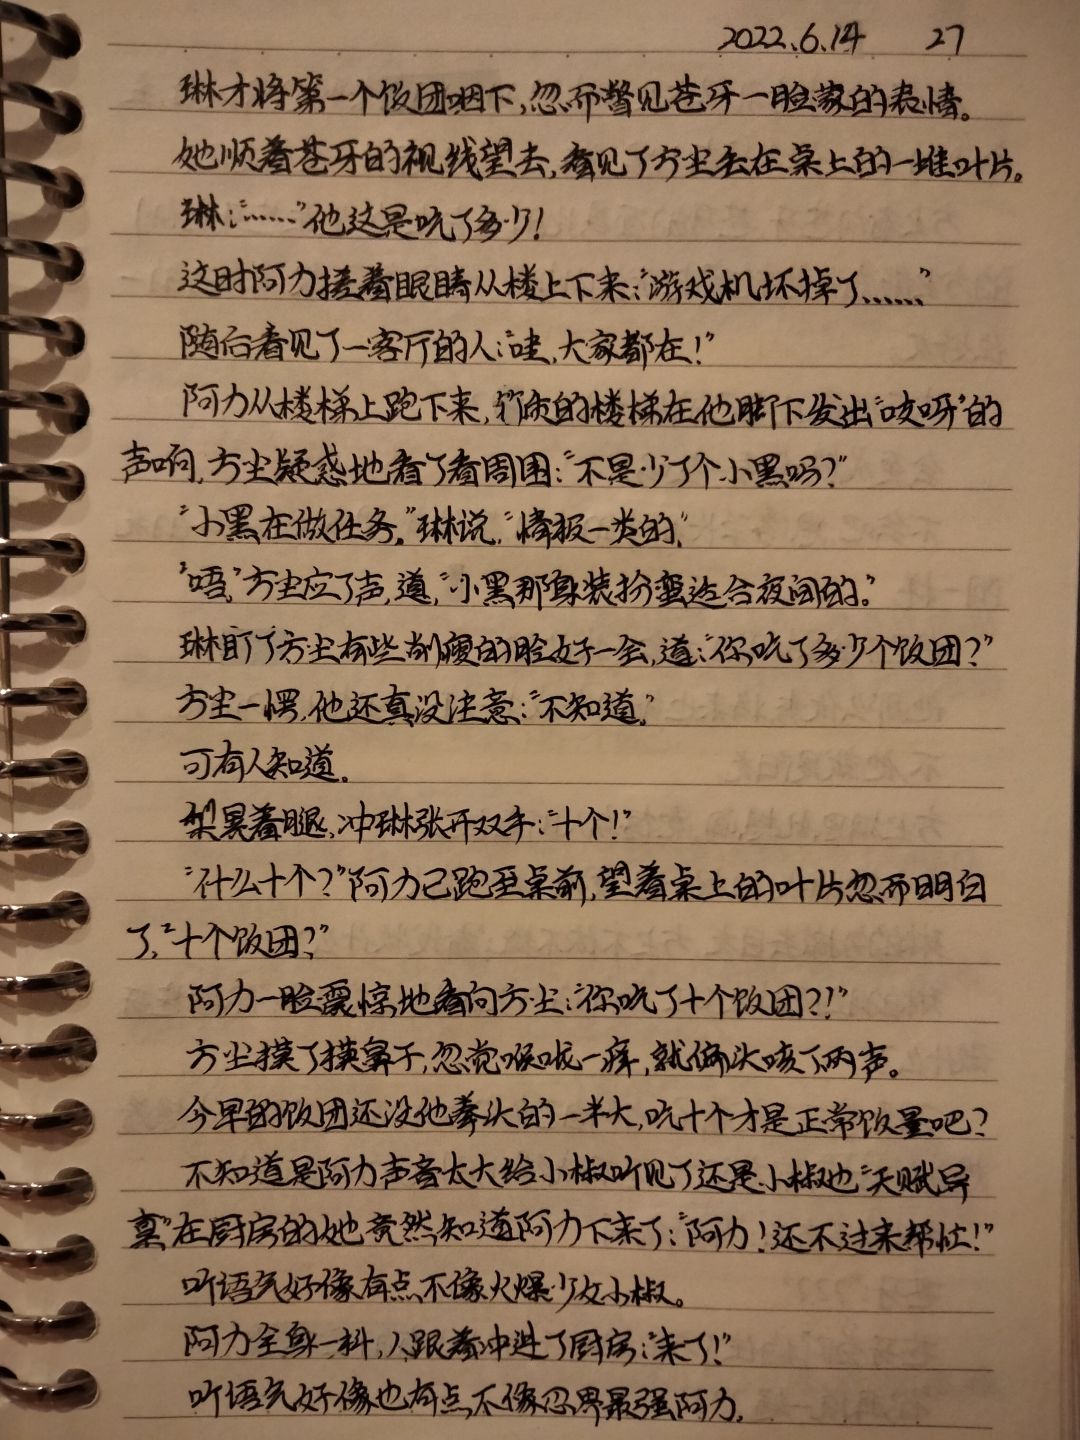 2022.6.14 27
琳才将第一个饭团咽下,忽而瞥见苍牙一脸蒙的表情。
她顺着苍牙的视线望去,看见了方尘丢在桌上的一堆叶片。
琳:“……”他这是吃了多少!
这时阿力搓着眼睛从楼上下来:“游戏机坏掉了……”
随后看见了一客厅的人:“哇,大家都在!”
阿力从楼梯上跑下来,竹质的楼梯在他脚下发出“吱呀”的
声响,方尘疑惑地看了看周围:“不是少了个小黑吗?”
“小黑在做任务。”琳说,“情报一类的。”
“唔。”方尘应了声,道,“小黑那身装扮蛮适合夜间的。”
琳盯了方尘有些削瘦的脸好一会,道:“你吃了多少个饭团?”
方尘一愣,他还真没注意:“不知道。”
可有人知道。
梨晃着腿,冲琳张开双手:“十个!”
“什么十个?”阿力已跑至桌前,望着桌上的叶片忽而明白
了,“十个饭团?”
阿力一脸震惊地看向方尘:“你吃了十个饭团?!”
方尘摸了摸鼻子,忽觉喉咙一痒,就偏头咳了两声。
今早的饭团还没他拳头的一半大,吃十个才是正常饭量吧?
不知道是阿力声音太大给小椒听见了还是小椒也“天赋异
禀”在厨房的她竟然知道阿力下来了:“阿力!还不过来帮忙!”
听语气好像有点不像火爆少女小椒。
阿力全身一抖,人跟着冲进了厨房:“来了!”
听语气好像也有点不像忍界最强阿力。